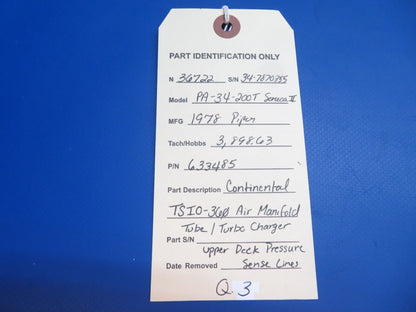 PART IDENTIFICATION ONLY
N 36722 S/N 34-7870355
Model PA-34-200T Seneca II
MFG 1978 Piper
Tach/Hobbs 3,898.63
P/N 633485
Part Description Continental
TSIO-360 Air Manifold
Tube / Turbo Charger
Part S/N Upper Deck Pressure
Date Removed Sense Lines
Q 3